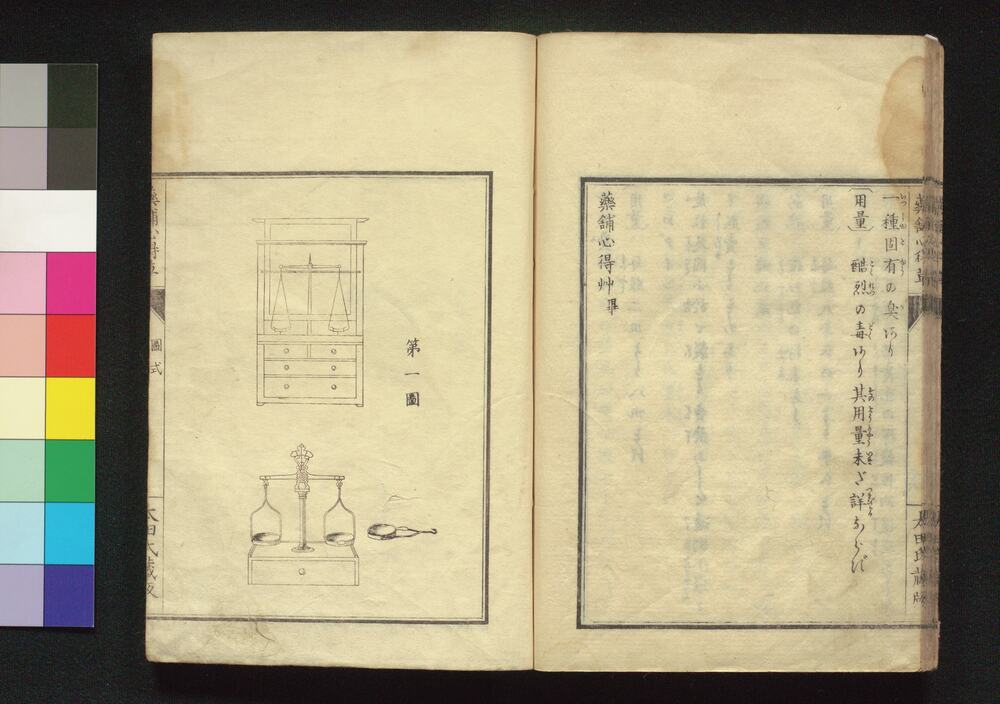 一種固有の臭あり
〔用量〕酷烈の毒あり其用量未だ詳ならず
藥舗心得艸畢
第一圖
圖式
大田氏藏版